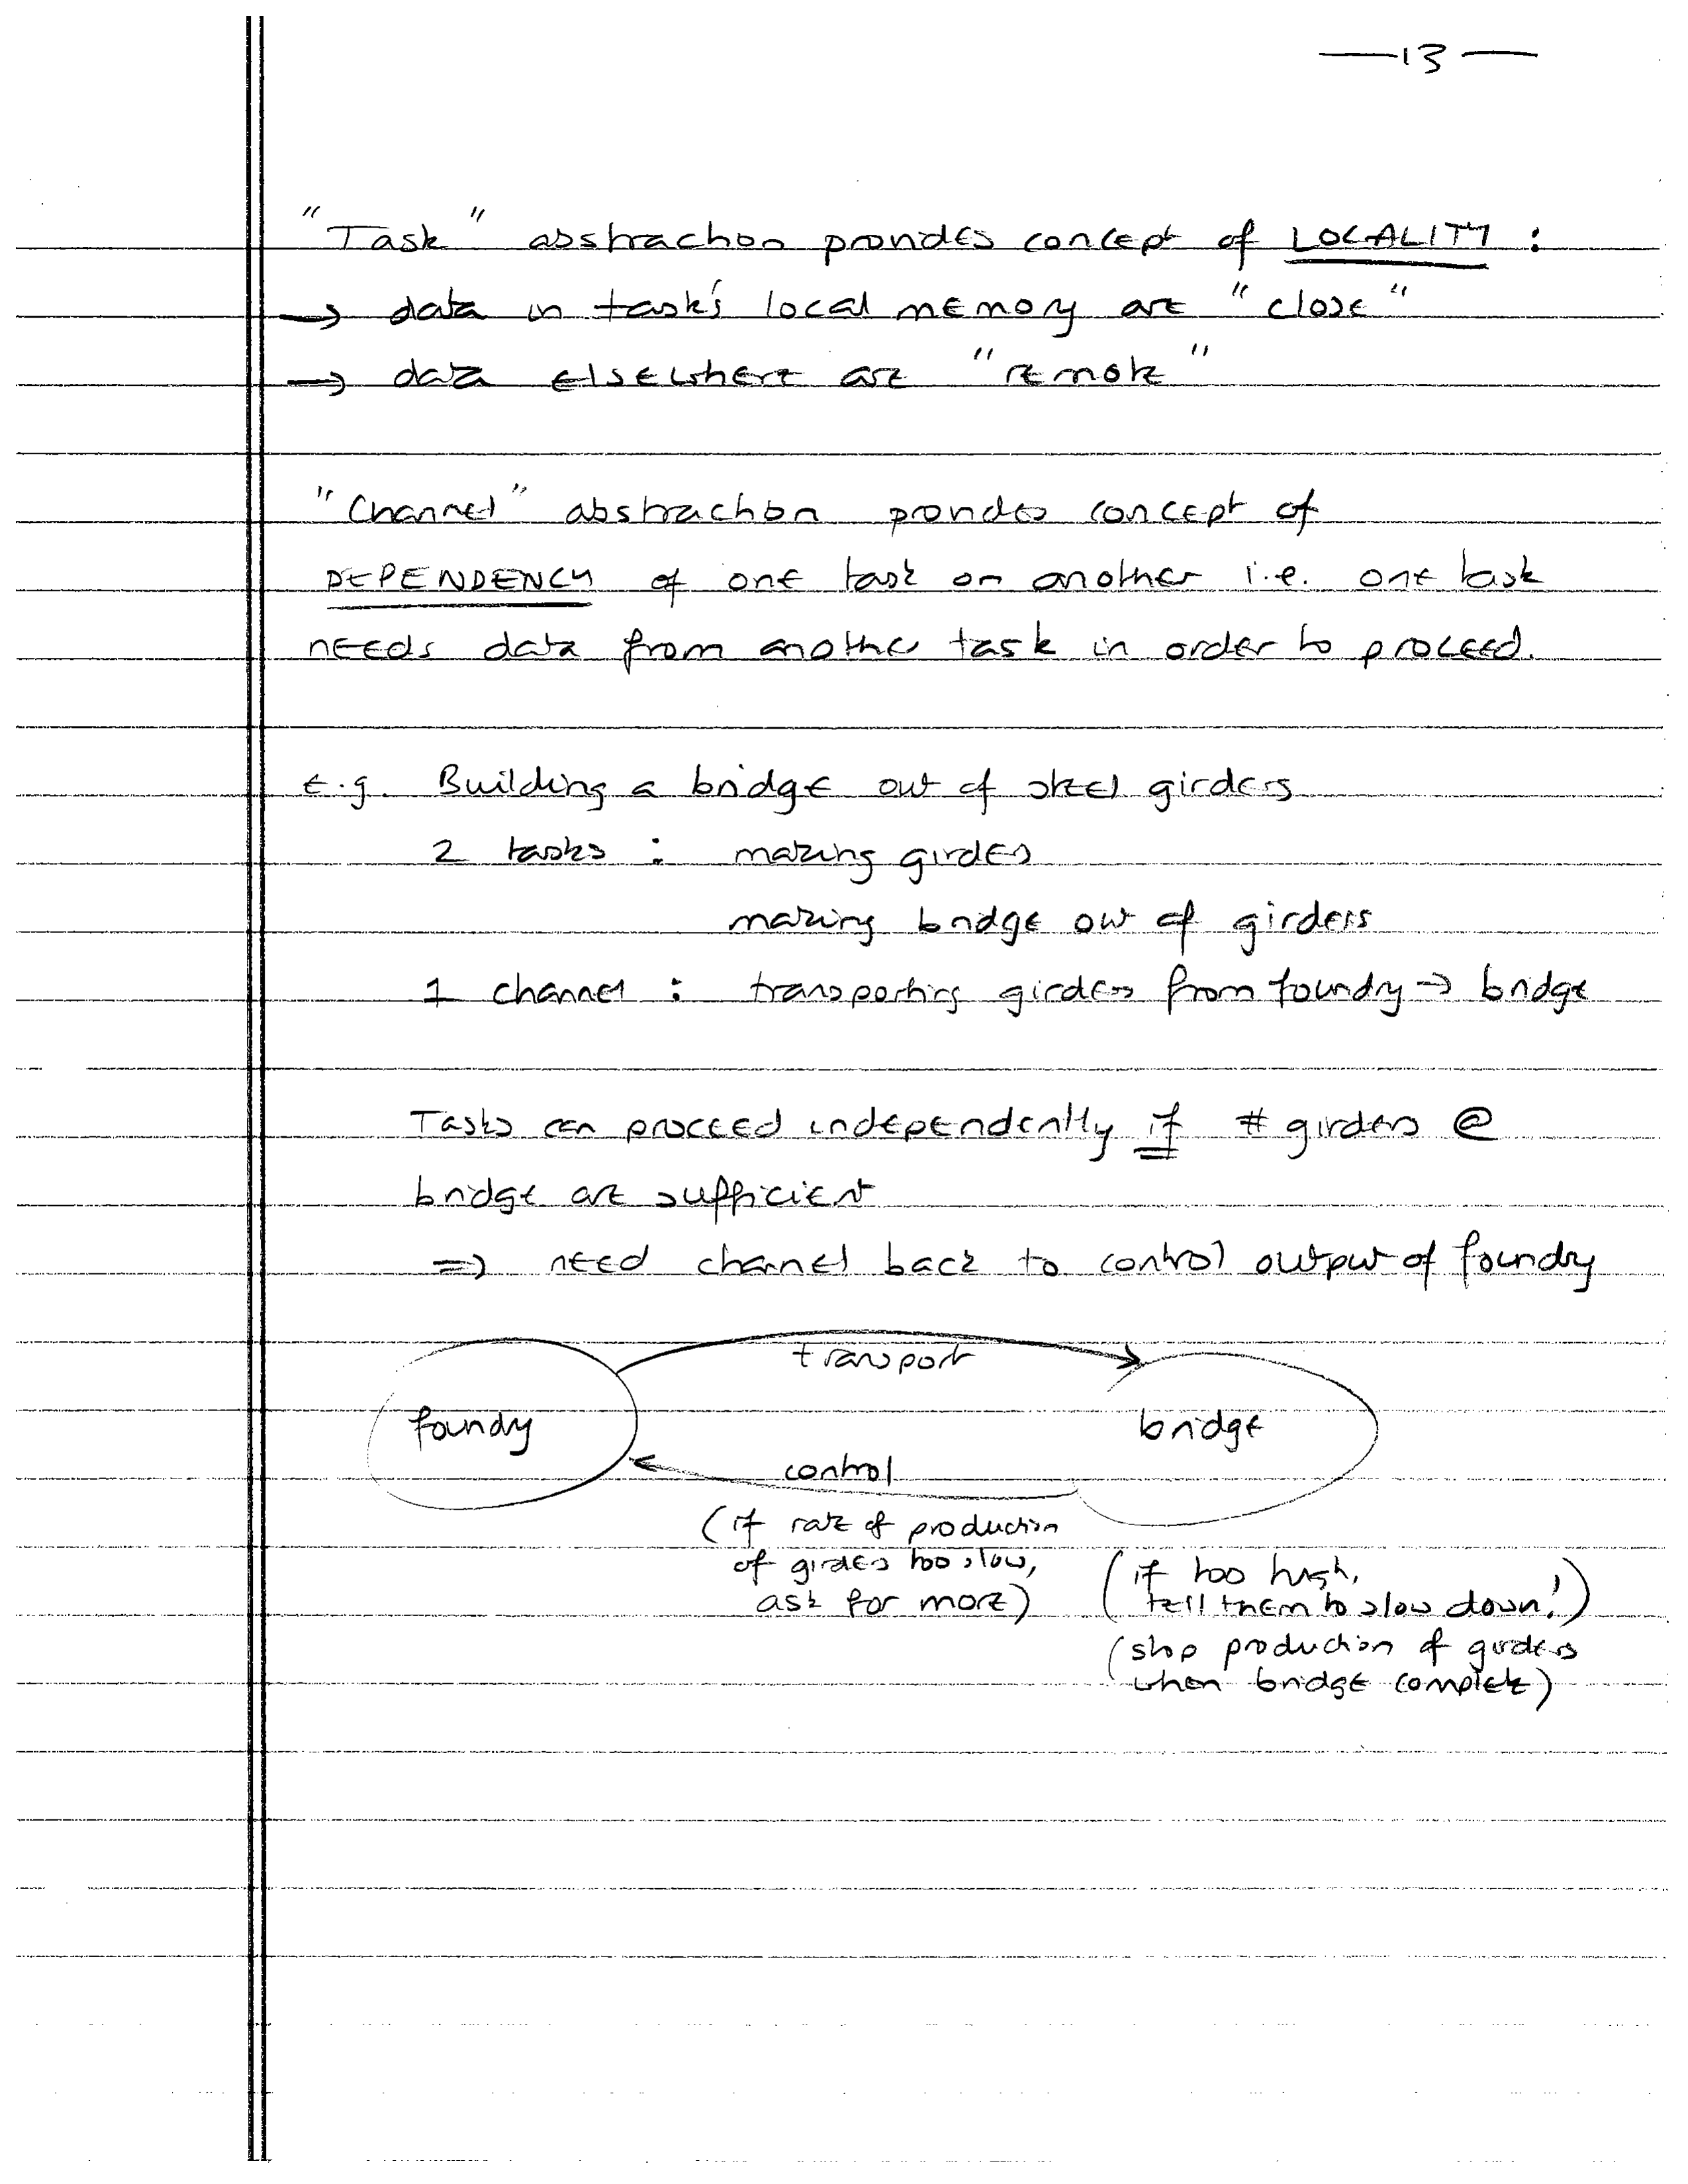 —13—
"Task" abstraction provides concept of LOCALITY :
→ data in task's local memory are "close"
→ data elsewhere are "remote"
"Channel" abstraction provides concept of
DEPENDENCY of one task on another i.e. one task
needs data from another task in order to proceed.
e.g. Building a bridge out of steel girders
2 tasks : making girders
making bridge out of girders
1 channel : transporting girders from foundry → bridge
Tasks can proceed independently if # girders @
bridge are sufficient
⇒ need channel back to control output of foundry
transport
foundry
bridge
control
(if rate of production
of girders too slow,
ask for more)
(if too high,
tell them to slow down!)
(stop production of girders
when bridge complete)